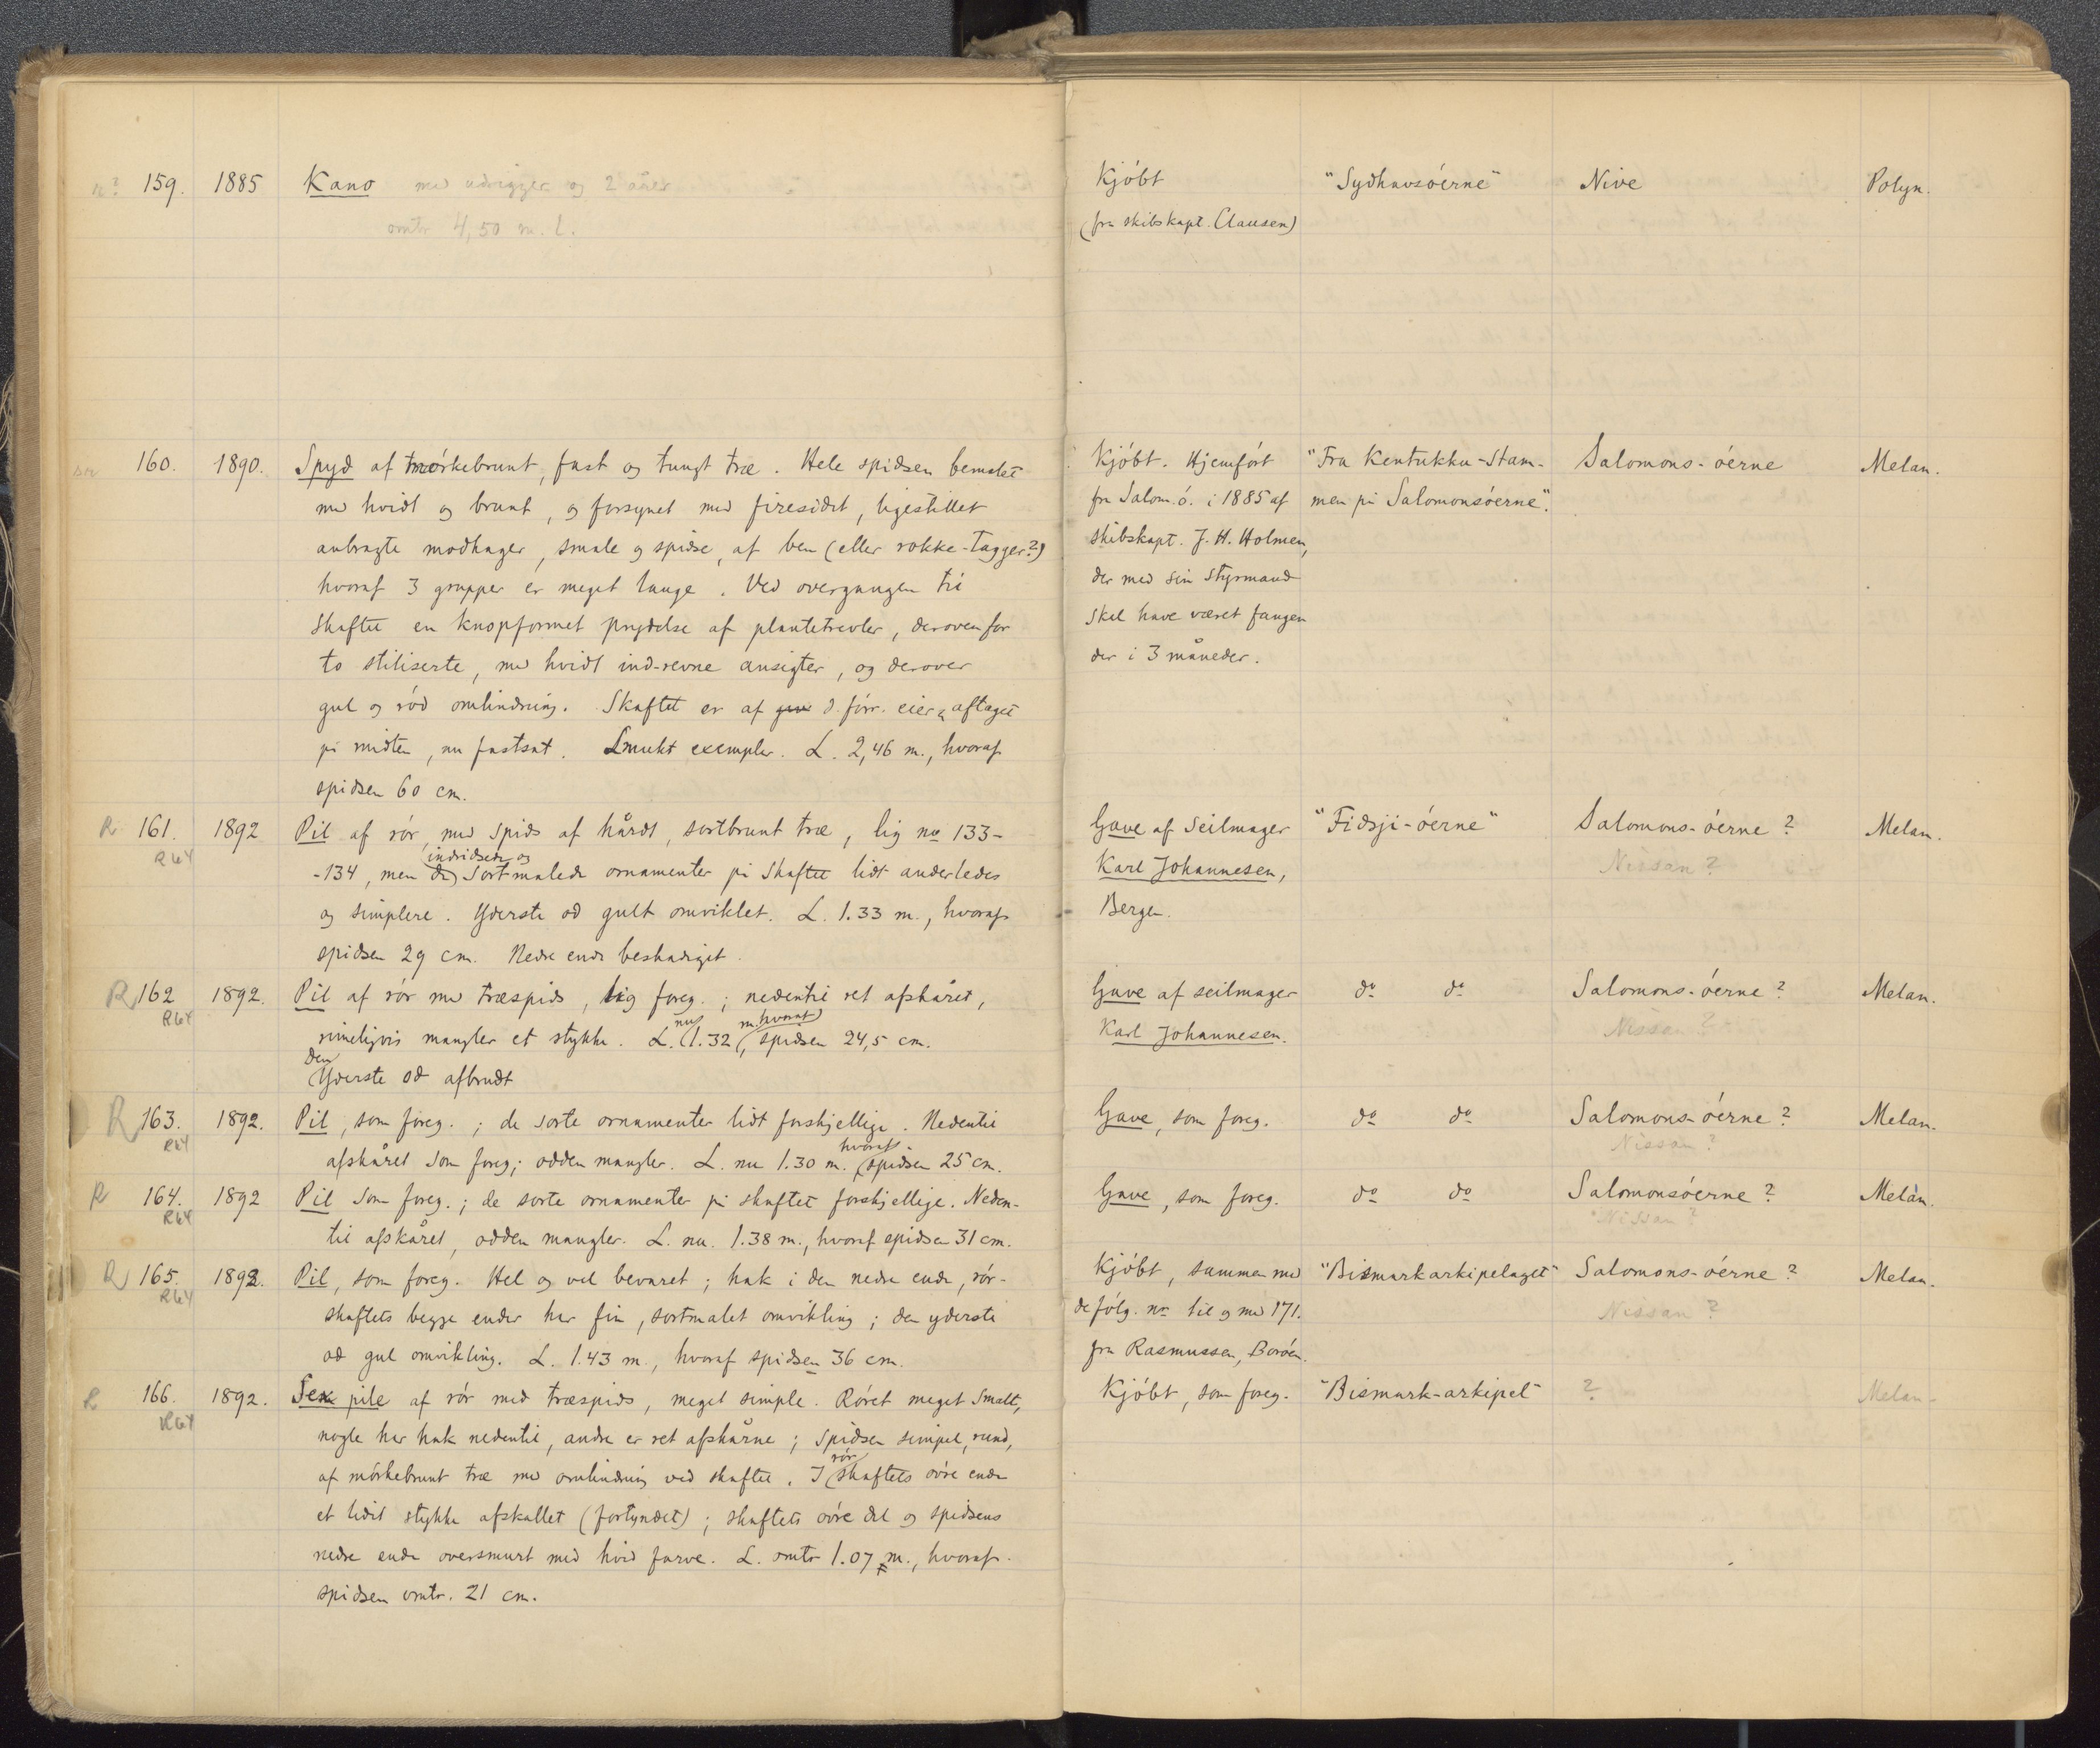 159. 1885 Kano med udrigger og 2 årer Kjóbt "Sydhavsóerne" Nive Polyn.
omtr 4,50 m. l. (fra skibskapt. Clausen)
160. 1890. Spyd af mórkebrunt, fast og tungt træ. Hele spidsen bemalet Kjóbt. Hjemfórt "Fra Kentukku-Stam- Salomons-óerne Melan.
med hvidt og brunt, og forsynet med firesidet, ligestillet fra Salom.ó. i 1885 af men på Salomonsóerne".
anbragte modhager, smale og spidse, af ben (eller rokke-tagger?) skibskapt. J. H. Holmen,
hvoraf 3 grupper er meget lange. Ved overgangen til der med sin Styrmand
skaftet en knopformet prydelse af plantetrevler, derovenfor skal have været fangen
to stiliserte, med hvidt ind-revne ansigter, og derover der i 3 måneder.
gul og ród omlindning. Skaftet er af d. fórr. eier aftaget
på midten, nu fastsat. Smukt exemplar. L. 2,46 m., hvoraf
spidsen 60 cm.
R 161. 1892 Pil af rór, med spids af hårdt, sortbrunt træ, lig no 133- Gave af Seilmager "Fidsji-óerne" Salomons-óerne? Melan.
R64 -134, men de indridsede og sortmalede ornamenter på Skaftet lidt anderledes Karl Johannesen, Nissan?
og simplere. Yderste od gult omviklet. L. 1.33 m., hvoraf Bergen.
spidsen 29 cm. Nedre ende beskadiget.
R 162 1892. Pil af rór med træspids, lig foreg.; nedentil ret afskåret, Gave af seilmager do do Salomons-óerne? Melan.
R64 rimeligvis mangler et stykke. L. nu 1.32 m. hvoraf, spidsen 24,5 cm. Karl Johannesen. Nissan?
den Yderste od afbrudt
R 163. 1892. Pil, som foreg.; de sorte ornamenter lidt forskjellige. Nedentil Gave, som foreg. do do Salomons-óerne? Melan.
R64 afskåret som foreg; odden mangler. L. nu 1.30 m. hvoraf spidsen 25 cm. Nissan?
R 164. 1892 Pil som foreg.; de sorte ornamenter på skaftet forskjellige. Neden- Gave, som foreg. do do Salomonsóerne? Melan.
R64 til afskåret, odden mangler. L. nu. 1.38 m., hvoraf spidsen 31 cm. Nissan?
R 165. 1892. Pil, som foreg. Hel og vel bevaret; hak i den nedre ende, rór- Kjóbt, sammen med "Bismarkarkipelaget" Salomons-óerne? Melan.
R64 skaftets begge ender har fin, sortmalet omvikling; den yderste de fólg. nr. til og med 171. Nissan?
od gul omvikling. L. 1.43 m., hvoraf spidsen 36 cm. fra Rasmussen, Boróen.
R 166. 1892. Sex pile af rór med træspids, meget simple. Róret meget smalt, Kjóbt, som foreg. "Bismark-arkipel" ? Melan-
R64 nogle har hak nedentil, andre er ret afskårne; spidsen simpel, rund,
af mórkebrunt træ med omlindning ved skaftet. I rór skaftets óvre ende
et lidet stykke afskallet (fortyndet); skaftets óvre del og spidsens
nedre ende oversmurt med hvid farve. L. omtr 1.07 m., hvoraf
spidsen omtr. 21 cm.